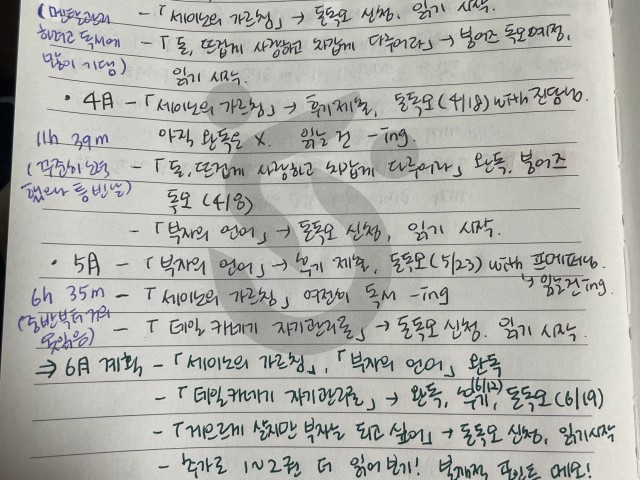 (멘탈관리 - 「세이노의 가르침」 → 돈독모 신청, 읽기 시작.
하려고 독서에 - 「돈, 뜨겁게 사랑하고 차갑게 다루어라」 → 붕어즈 독모예정,
많이 기댐) 읽기 시작.
• 4月 - 「세이노의 가르침」 → 후기제출, 돈독모(4/18) with 진담님.
11h 39m 아직 완독은 X. 읽는 건 -ing.
(꾸준히 노력 - 「돈, 뜨겁게 사랑하고 차갑게 다루어라」 완독, 붕어즈
독모 (4/8)
- 「부자의 언어」 → 돈독모 신청, 읽기 시작.
• 5月 - 「부자의 언어」 → 후기 제출, 돈독모(5/23) with 프메퍼님.
↳ 읽는건 ing.
6h 35m - 「세이노의 가르침」 여전히 독서 -ing
(중반부터 거의 - 「데일 카네기 자기관리론」 → 돈독모 신청. 읽기 시작.
못읽음)
⇒ 6月 계획 - 「세이노의 가르침」, 「부자의 언어」 완독
- 「데일카네기 자기관리론」 → 완독, 후기(6/12), 돈독모(6/19)
- 「게으르게 살지만 부자는 되고 싶어」 → 돈독모 신청, 읽기시작
- 추가로 1~2권 더 읽어보기! 포인트 메모!